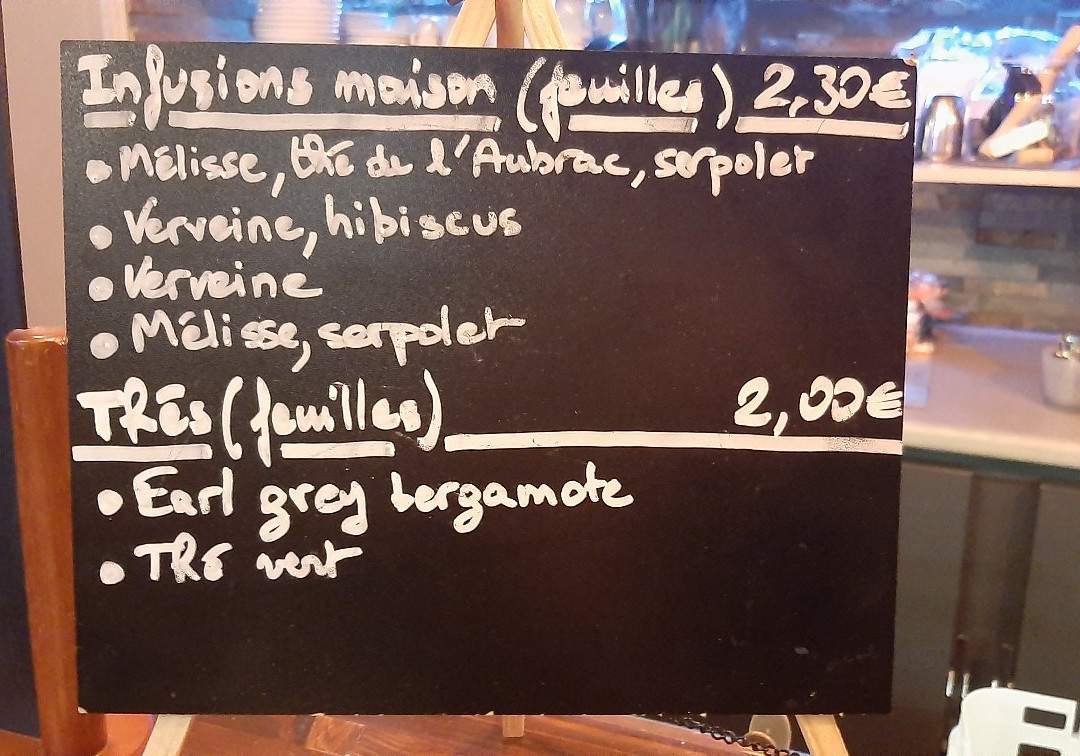 Infusions maison (feuilles) 2,30€
• Mélisse, thé de l'Aubrac, serpolet
• Verveine, hibiscus
• Verveine
• Mélisse, serpolet
Thés (feuilles) 2,00€
• Earl grey bergamote
• Thé vert